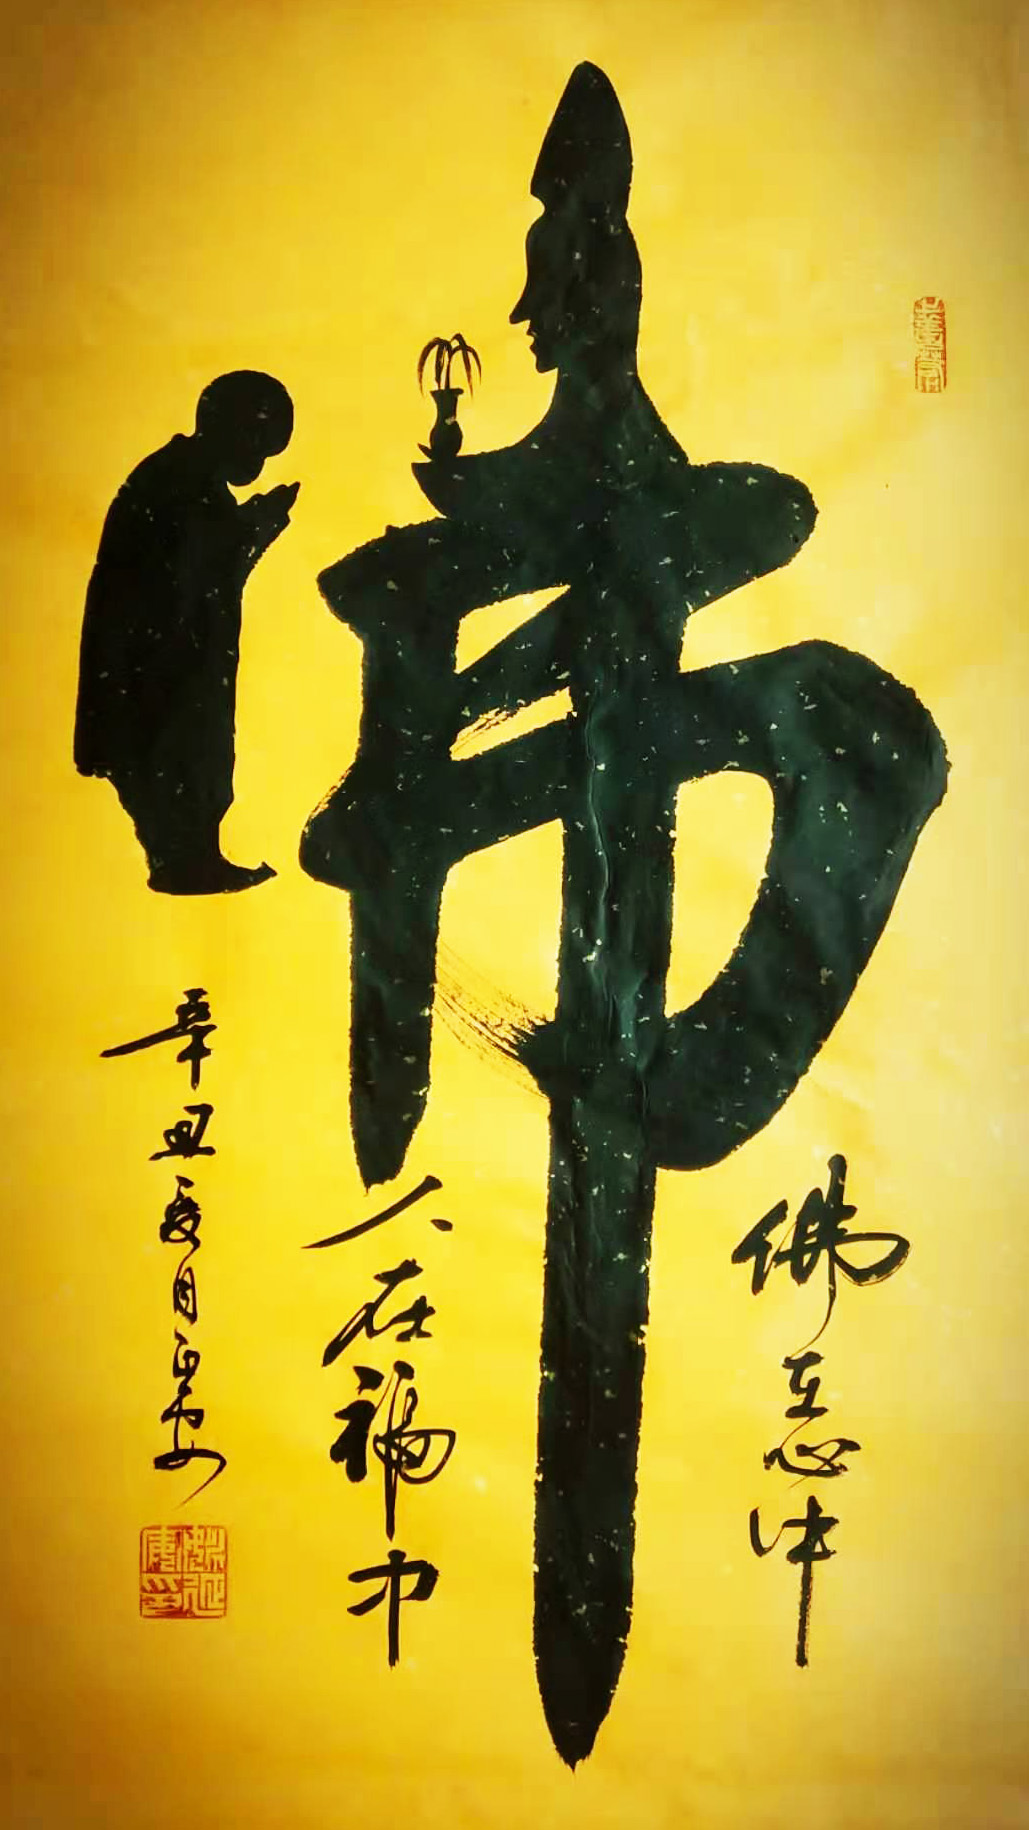 佛
佛在心中
人在福中
辛丑夏月